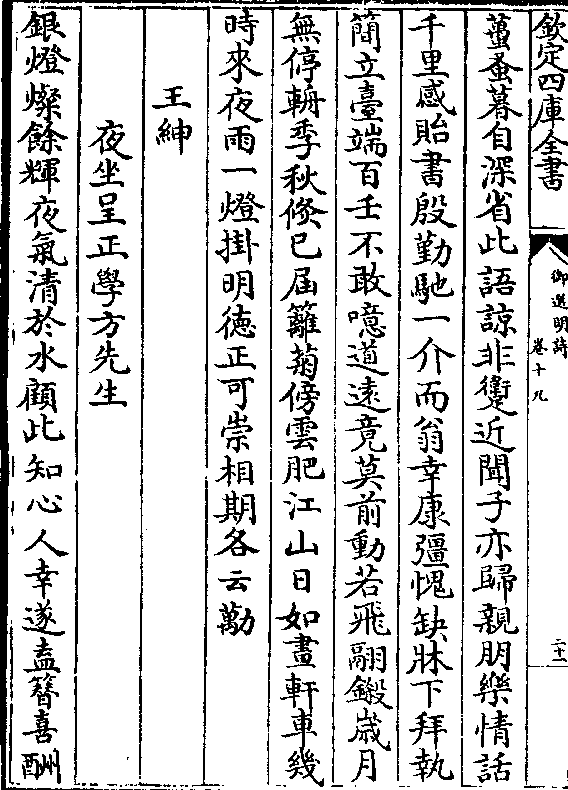 欽定四庫全書
御選明詩
卷十九
二十一
蠆蚤暮自深省此語諒非躗近聞子亦歸親朋樂情話
千里感貽書殷勤馳一介而翁幸康彊愧缺牀下拜執
簡立臺端百壬不敢噫道遠竟莫前動若飛翮鎩歲月
無停軿季秋倐已屆籬菊傍雲肥江山日如畫軒車幾
時來夜雨一燈掛明德正可崇相期各云勱
王紳
夜坐呈正學方先生
銀燈燦餘輝夜氣清於水顧此知心人幸遂盍簪喜酬